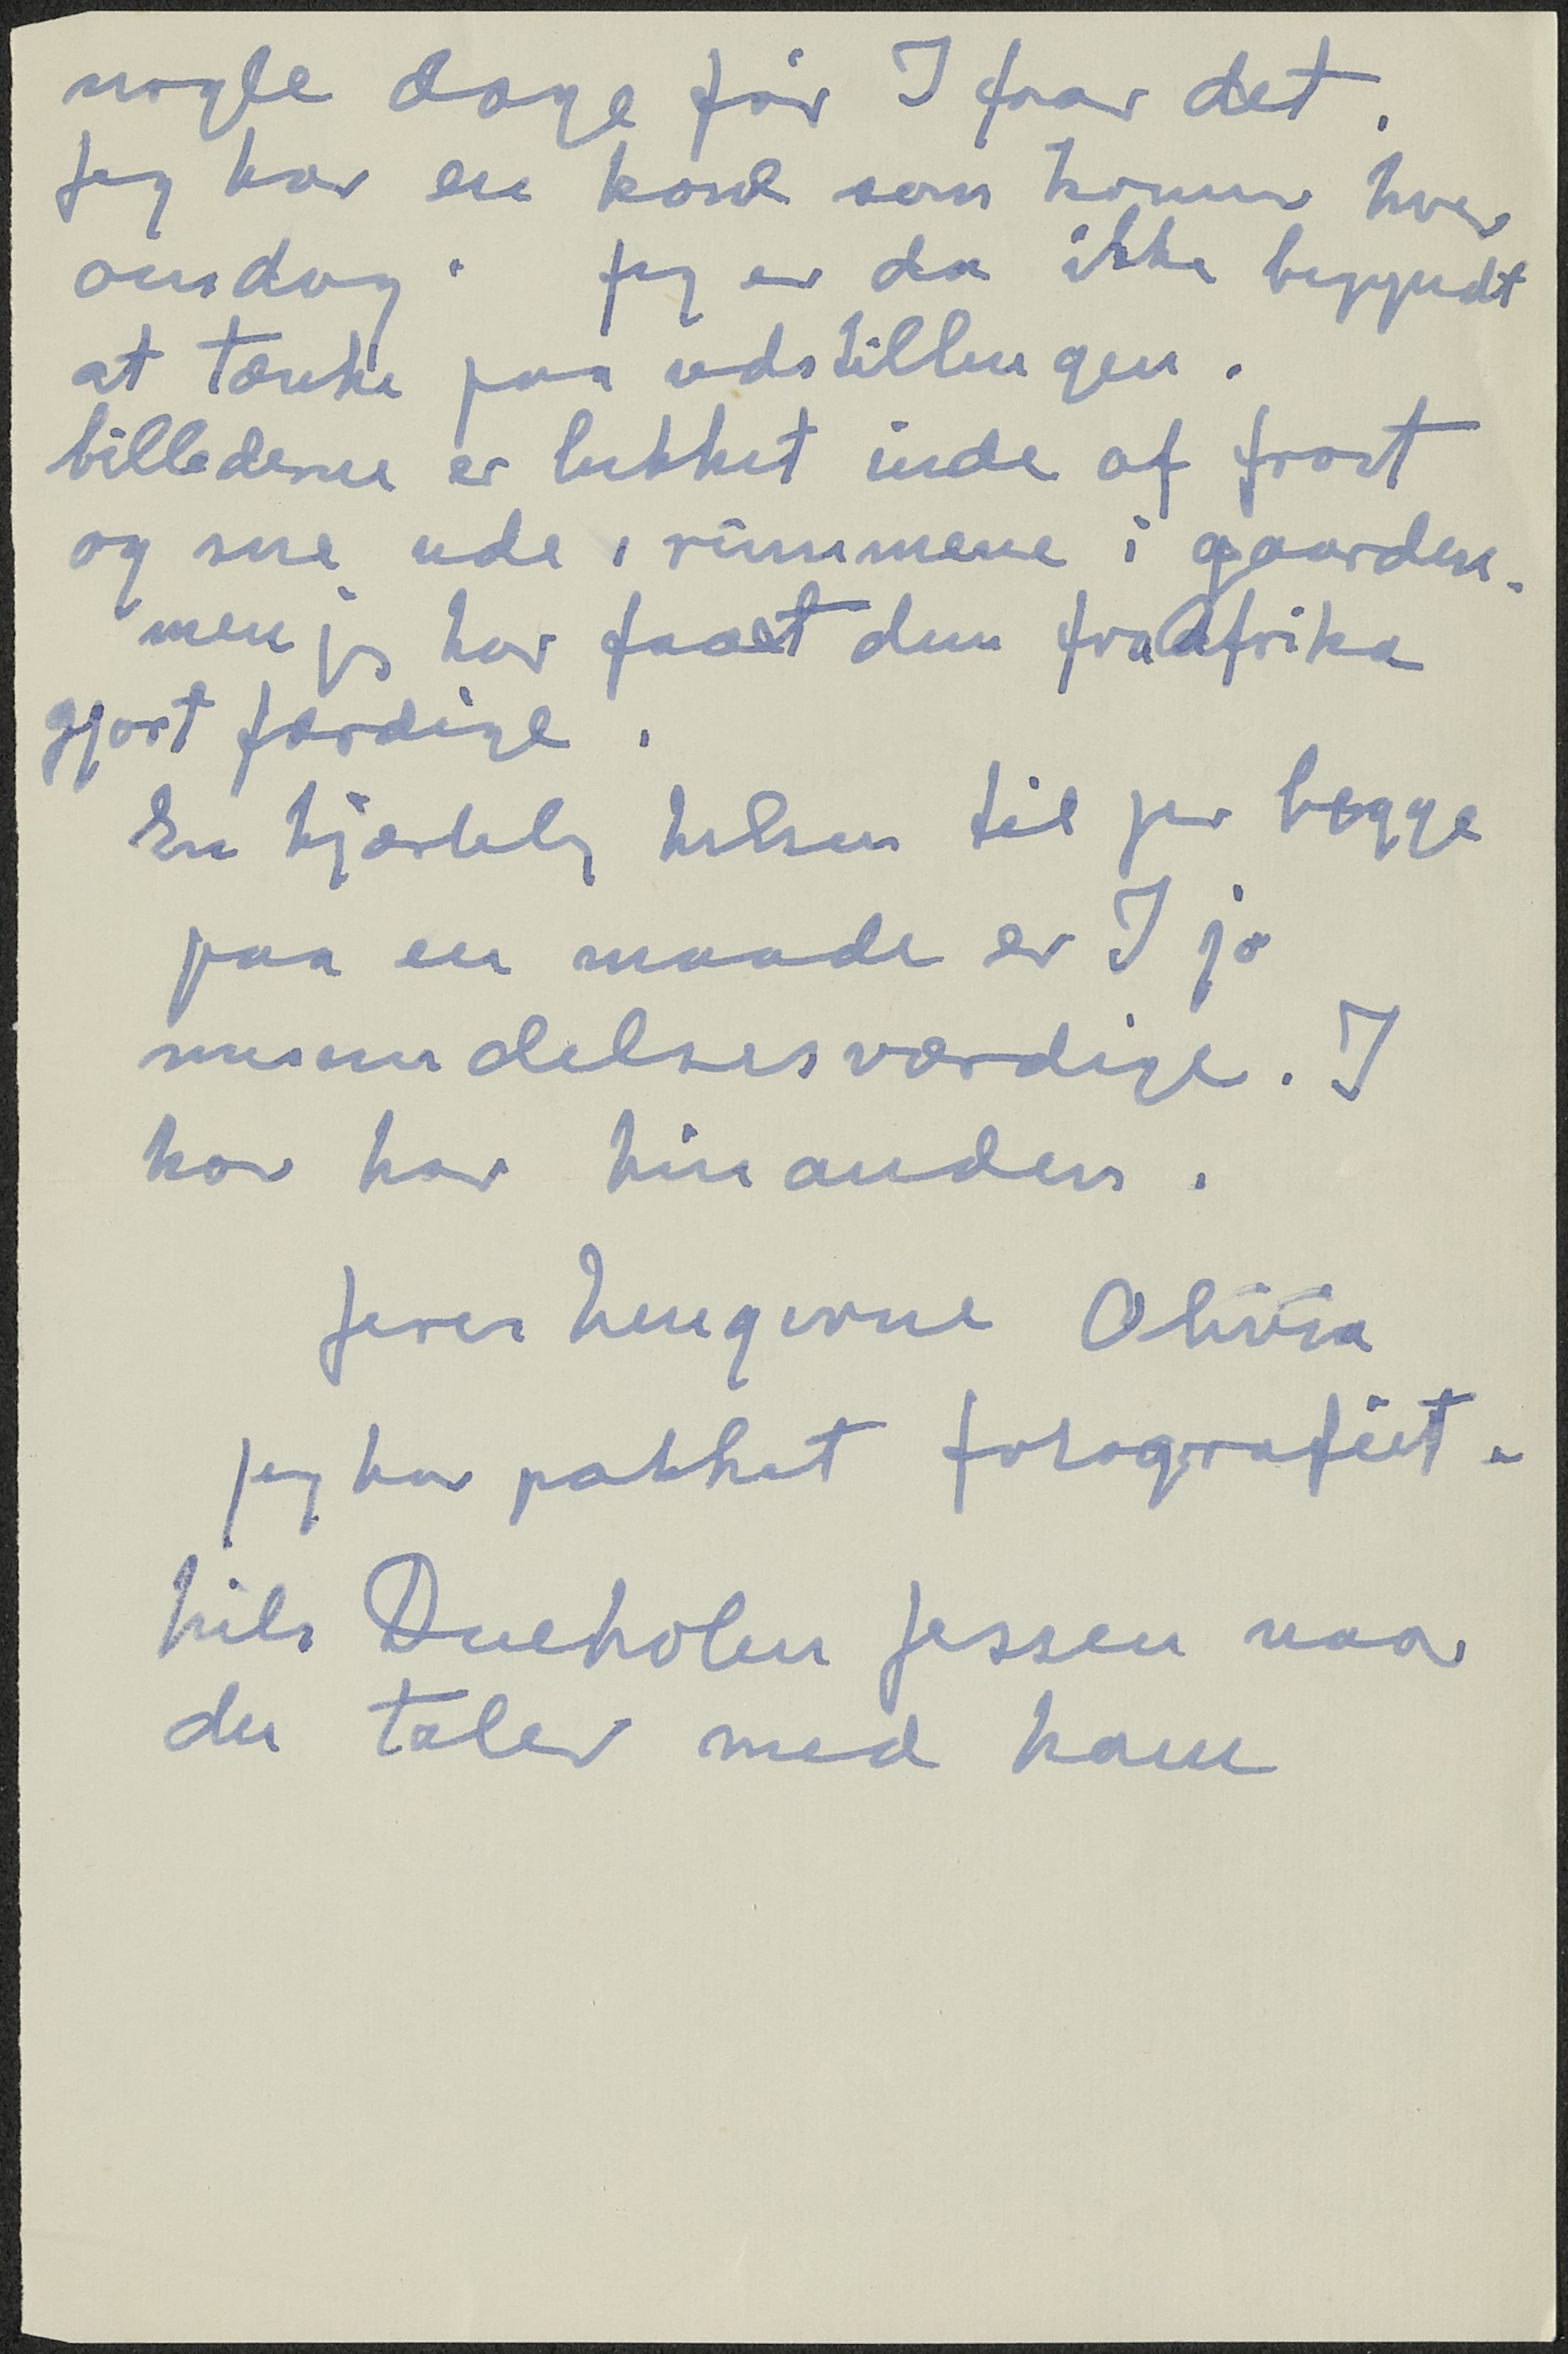 nogle dage før I faar det.
Jeg har en kone som kommer hver
onsdag. Jeg er da ikke begyndt
at tænke paa udstillingen.
billederne er lukket inde af frost
og sne ude i rummene i gaarden.
men jeg har faaet dem fra Afrika
gjort færdige.
En hjærtelig hilsen til jer begge
paa en maade er I jo
misundelsesværdige. I
har har hinanden.
Jeres hengivne Olivia
jeg har pakket fotografiet.
hils Dueholm Jessen naar
du taler med ham